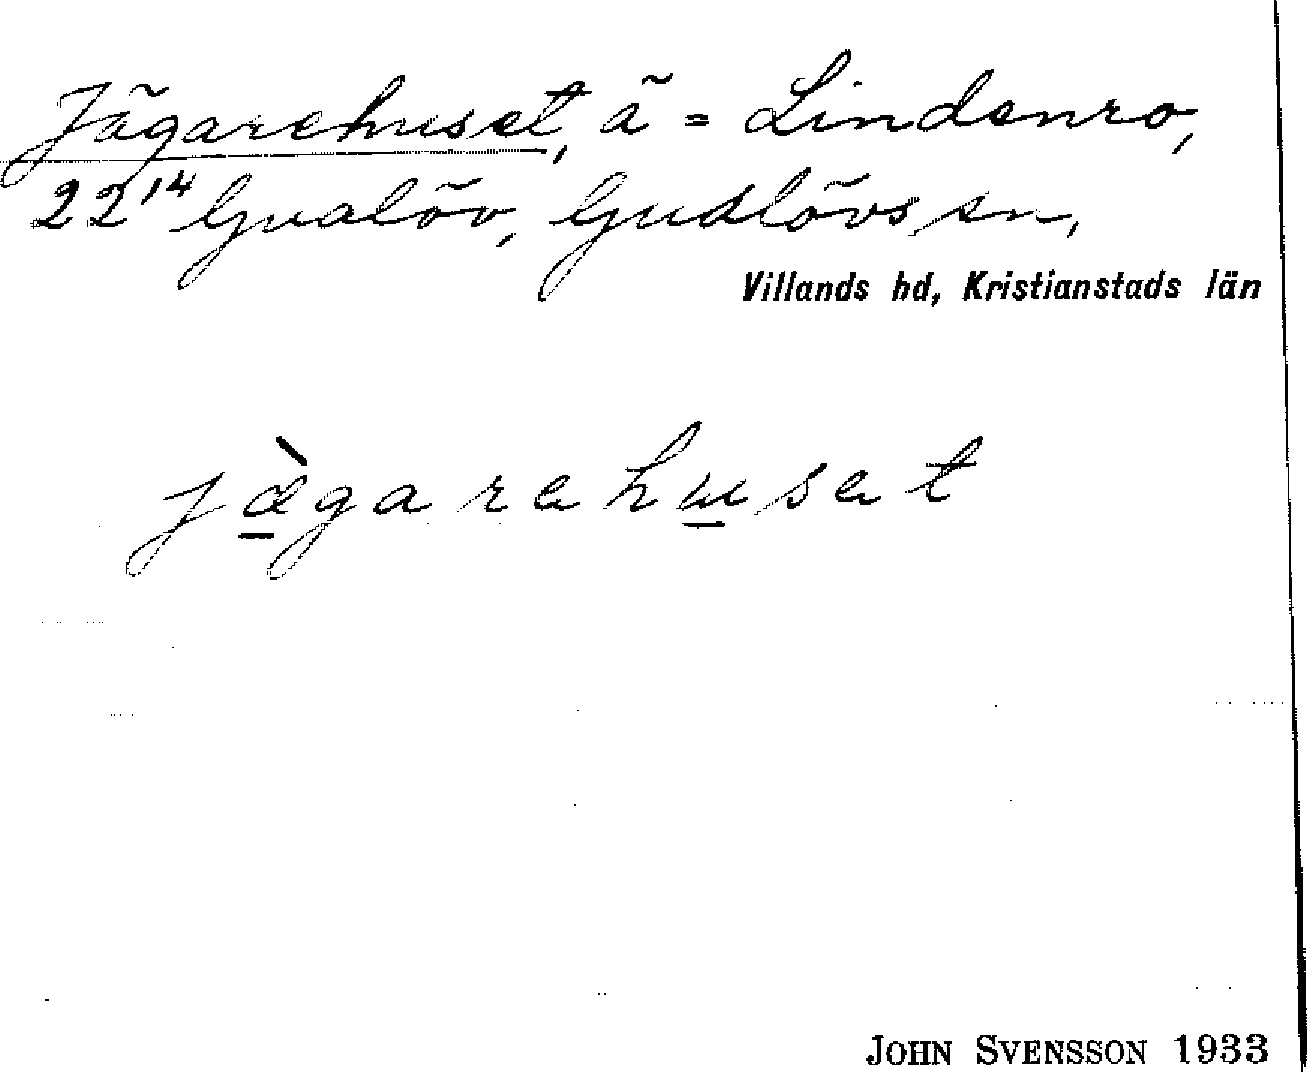 Jägarehuset, ä = Lindenro,
22¹⁴ Gualöv, Gudlövs sn,
Villands hd, Kristianstads län
jæ̀garehuset
JOHN SVENSSON 1933